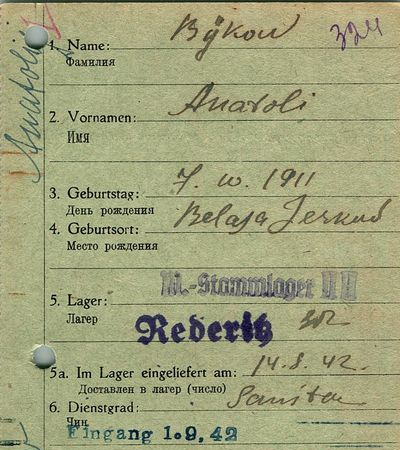 324
1. Name: Býkow
Фамилия
Anatoli
2. Vornamen: Anatoli
Имя
3. Geburtstag: 7. 10. 1911
День рождения
4. Geburtsort: Belaja
Место рождения
M.-Stammlager II
5. Lager:
Лагер
Rederitz
5a. Im Lager eingeliefert am: 14.8.42.
Доставлен в лагер (число)
6. Dienstgrad:
Чин
Eingang 1.9.42